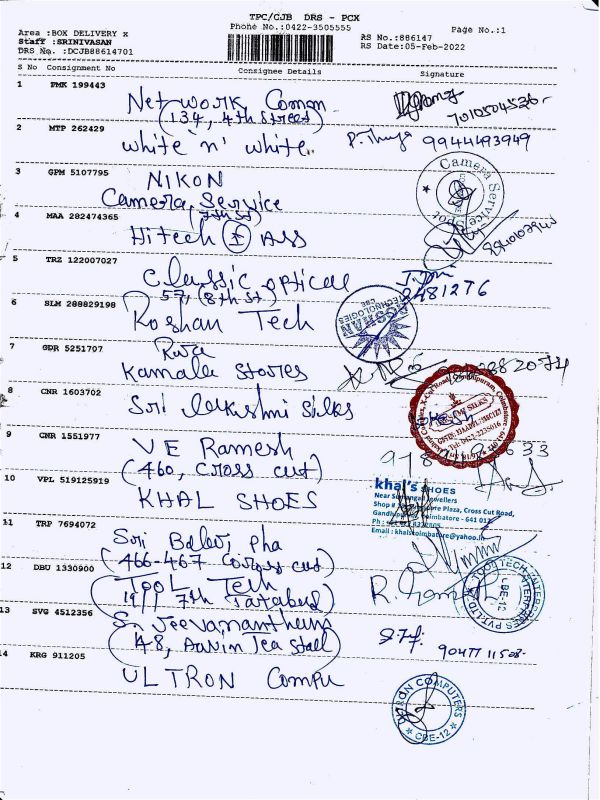 TPC/CJB DRS - PCX
Phone No.:0422-3505555
Page No.:1
Area :BOX DELIVERY x
Staff :SRINIVASAN
DRS No. :DCJB88614701
RS No.:886147
RS Date:05-Feb-2022
S No Consignment No Consignee Details Signature
1 PMK 199443
Network Comm
(134, 4th Street)
7010504526
2 MTP 262429
White 'n' white
9944493949
3 GPM 5107795
NIKON
Camera Service
(7th St)
Camera Service Spot
4 MAA 282474365
Hitech Ass
5 TRZ 122007027
Classic optical
57, (8th St)
2481276
6 SLM 288829198
Roshan Tech
ROSHAN TECHNOLOGIES CBE
7 GDR 5251707
Kamala Stores
8 CNR 1603702
Sri Lakshmi Silks
9 CNR 1551977
VE Ramesh
(460, cross cut)
10 VPL 519125919
KHAL SHOES
khal's SHOES
Near Jewellers
Shop # Plaza, Cross Cut Road,
Coimbatore - 641 012
Email : khalscoimbatore@yahoo.in
11 TRP 7694072
Sri
(466-467 Cross cut)
12 DBU 1330900
TOOL Tech
7th Tatabad)
TOOLTECH ENTERPRISES PVT LTD CBE-12
13 SVG 4512356
Sri Jeevanantham
48, Aavin Tea Stall
14 KRG 911205
ULTRON Compu
ULTRON COMPUTERS
CBE-12